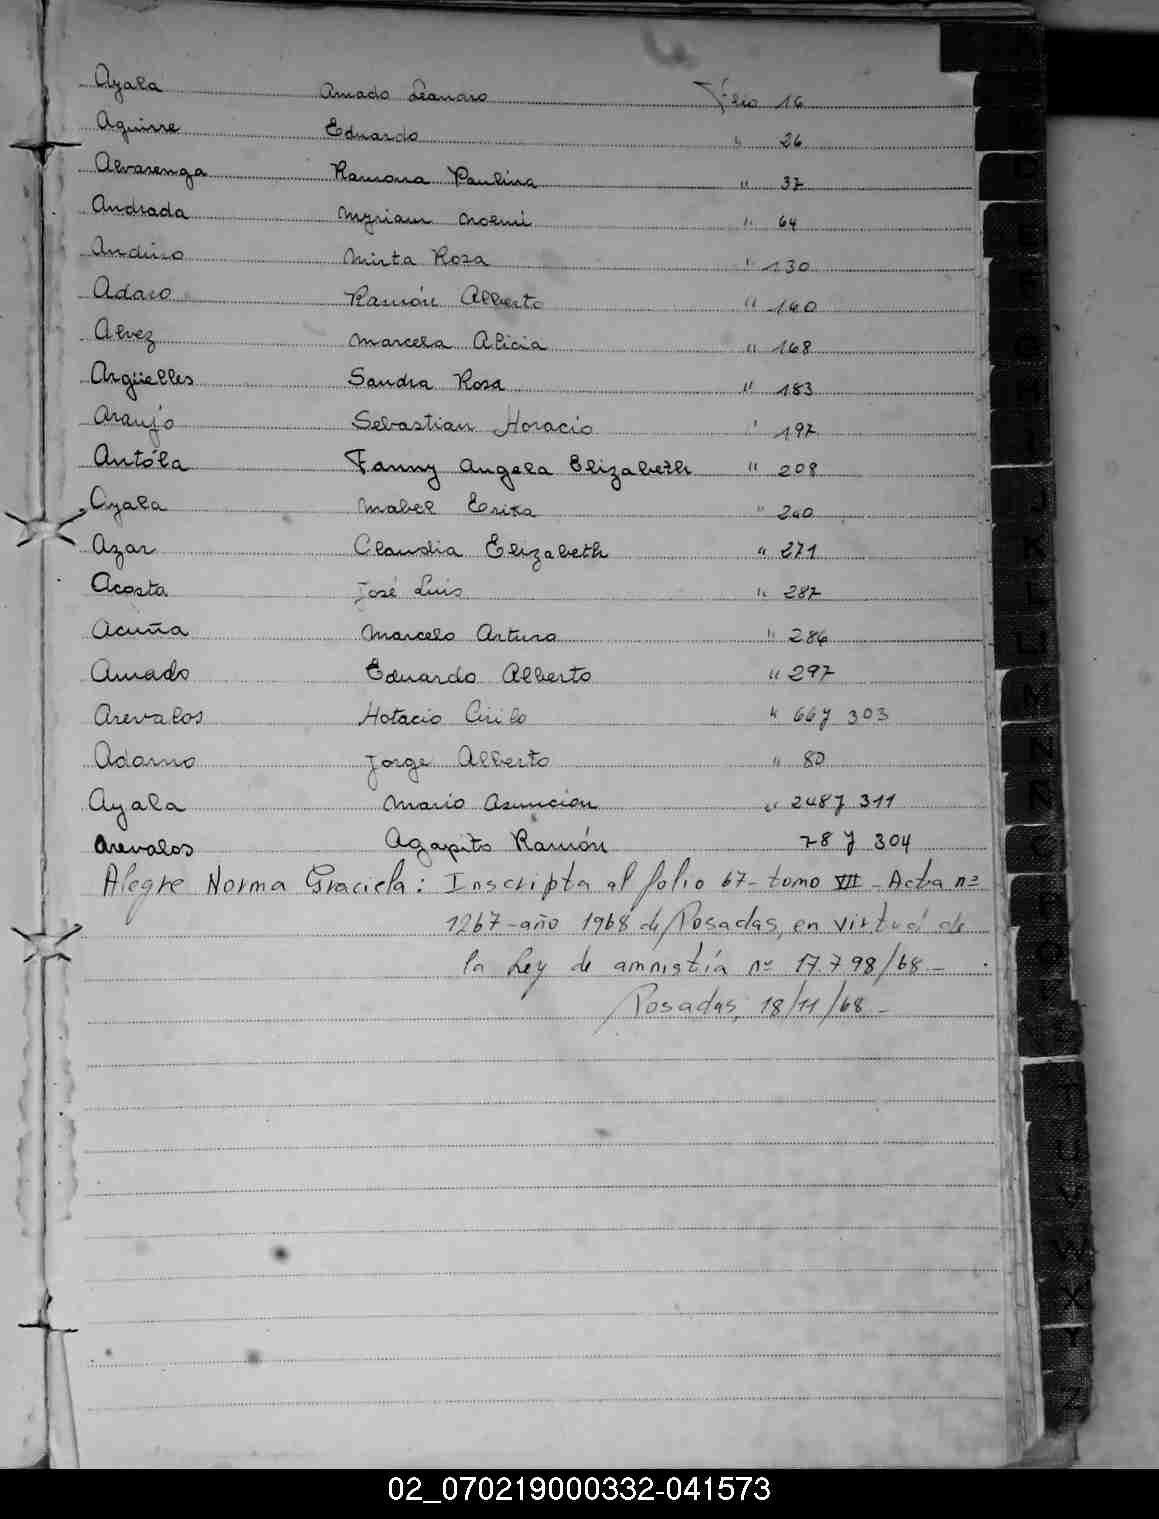 Ayala Amado Leandro Folio 16
Aguirre Eduardo " 26
Alvarenga Ramona Paulina " 37
Andrada Myriam Noemi " 64
Andino Mirta Rosa " 130
Adaro Ramón Alberto " 160
Alvez Marcela Alicia " 168
Argüelles Sandra Rosa " 183
Araujo Sebastian Horacio " 197
Antóla Fanny Angela Elizabeth " 208
Ayala Mabel Erika " 240
Azar Claudia Elizabeth " 271
Acosta José Luis " 287
Acuña Marcelo Arturo " 286
Amado Eduardo Alberto " 297
Arevalos Horacio Cirilo " 66 y 303
Adorno Jorge Alberto " 80
Ayala Mario Asuncion " 248 y 311
Arevalos Agapito Ramón 78 y 304
Alegre Norma Graciela: Inscripta al folio 67- tomo VII - Acta nº
1267-año 1968 de Posadas, en virtud de
la Ley de amnistía nº 17.798/68-
Posadas, 18/11/68-
D
E
F
G
H
I
J
K
L
LL
M
N
Ñ
O
P
Q
T
U
V
W
X
Y
Z
02_070219000332-041573